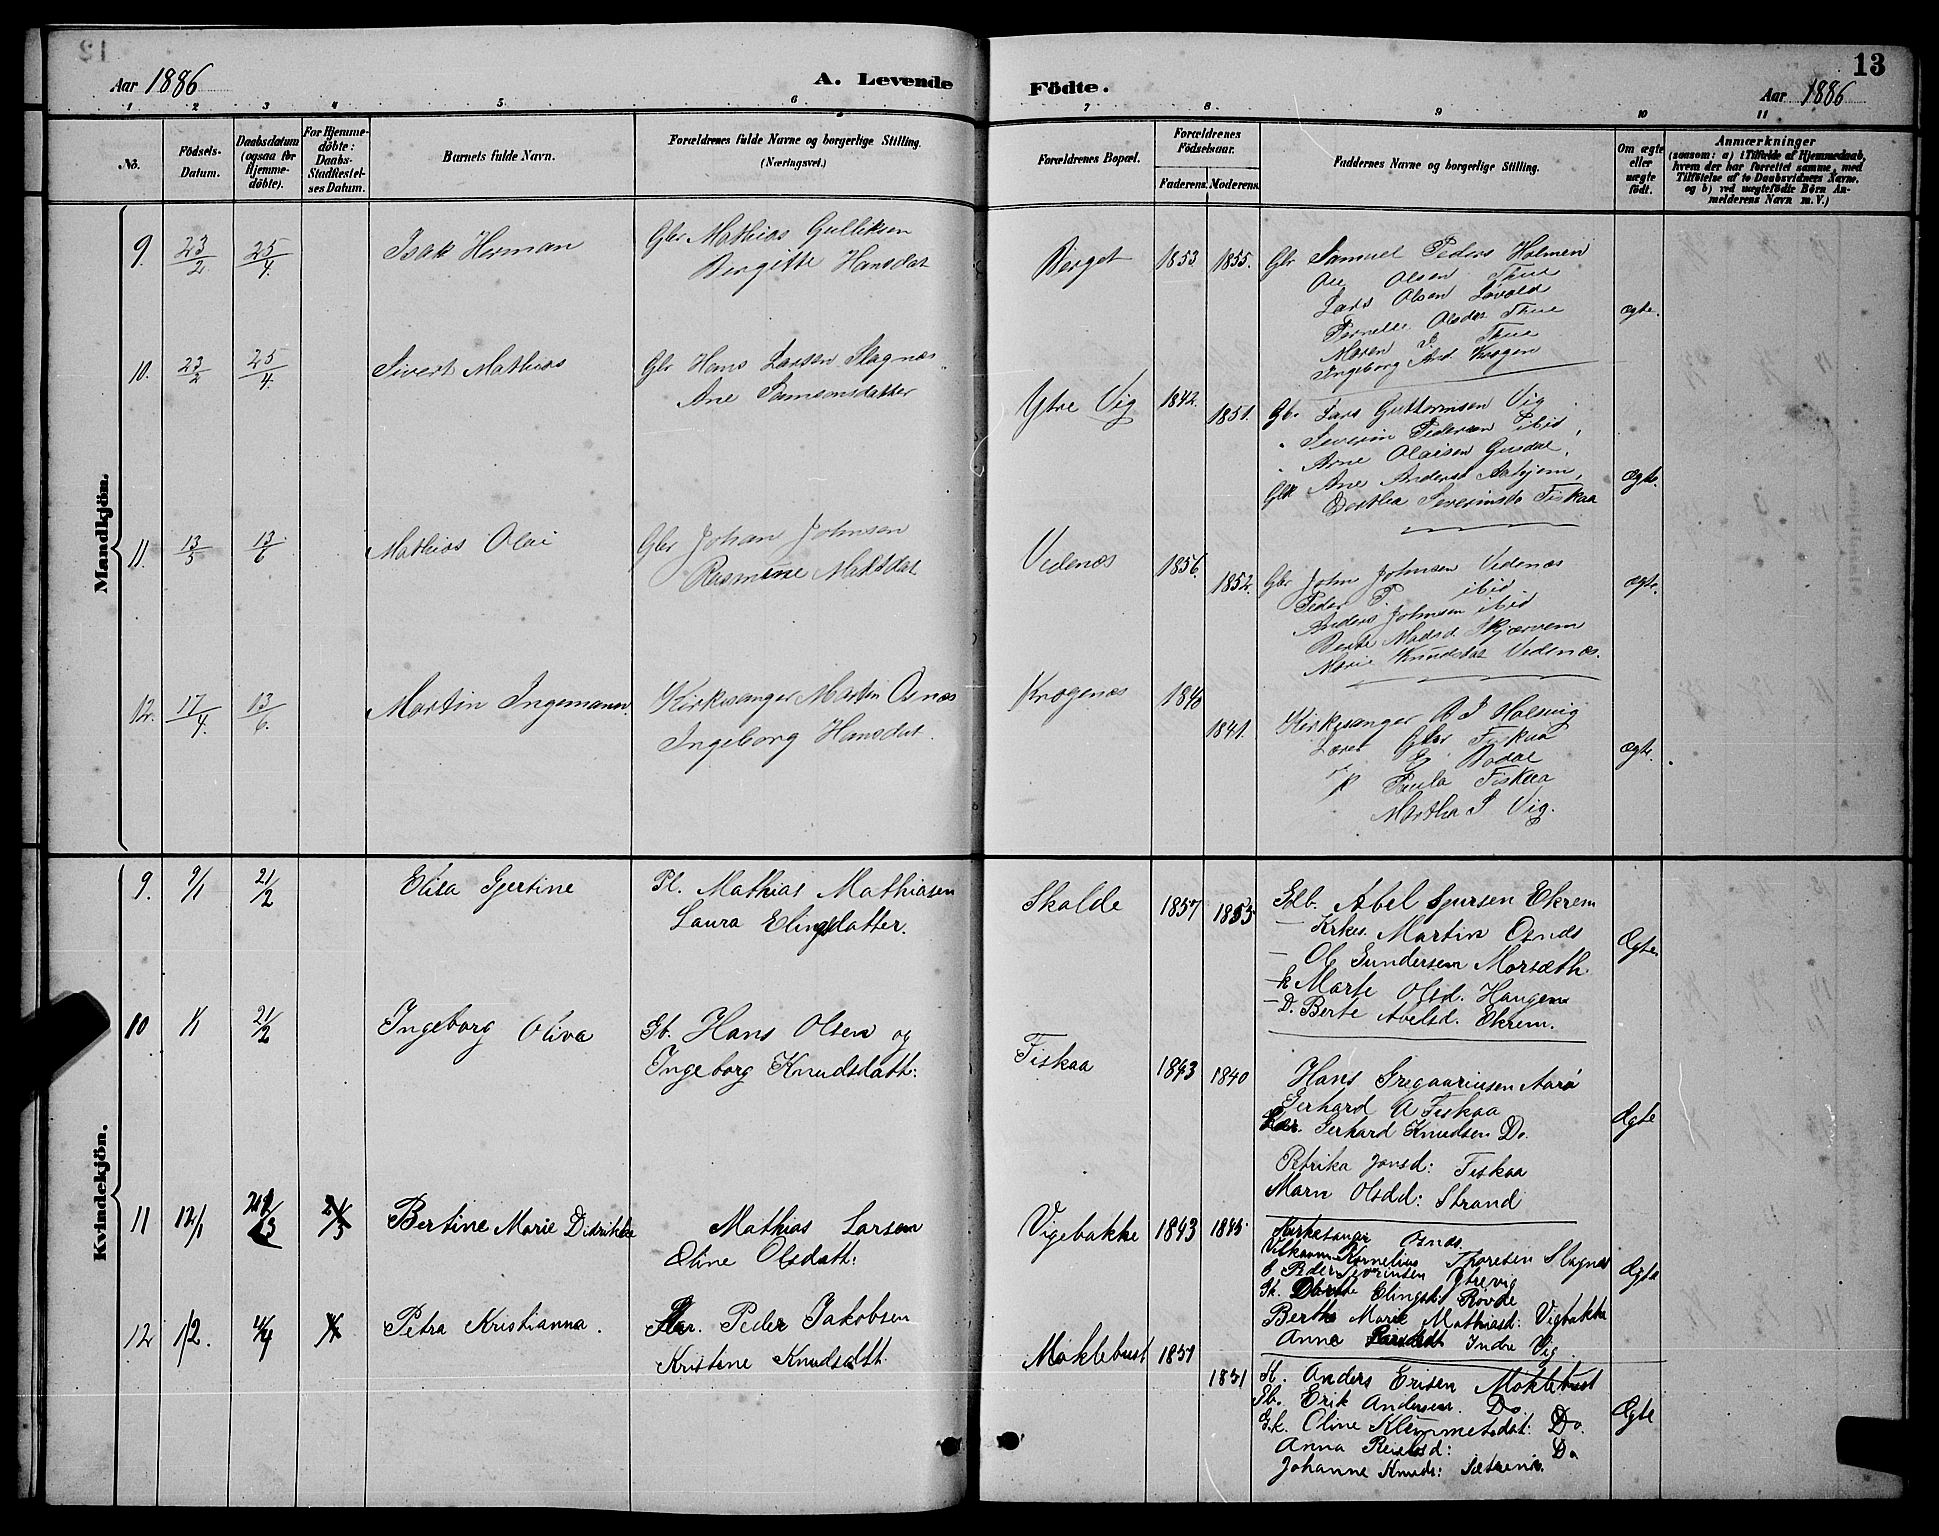 Aar 1886
A. Levende
Födte.
13
Aar 1886
1 2 3 4 5 6 7 8 9 10 11
No.
Födsels-Datum.
Daabsdatum (ogsaa for Hjemme-döbte).
For Hjemme-döbte: Daabs-Stadfæstel-ses Datum.
Barnets fulde Navn.
Forældrenes fulde Navne og borgerlige Stilling.
(Næringsvei.)
Forældrenes Bopæl.
Forældrenes Födselsaar.
Faderens. Moderens.
Faddernes Navne og borgerlige Stilling.
Om ægte eller uægte födt.
Anmærkninger
(saasom: a) i Tilfælde af Hjemmedaab,
hvem der har forrettet samme, med
Tilföielse af to Daabsvidners Navne,
og b) ved uægtefödte Börn An-
melderens Navn m. V.)
Mandkjön.
9. 23/2 25/4 Isak Herman
Gbr Mathias Gulliksen
Birgitte Hansdat
Berget 1853 1855.
Gbr Samuel Peders Holmen
Ole Olsen Thue
Lars Olsen Løvold
Pernelle Olsdtr Thue
Maren P. Thue
Ingeborg And Krogen
ægte.
10. 23/2 25/4. Sivert Mathias
Gbr Hans Larsen Slagnæs
Ane Samsonsdatter
Ytre Vig 1842. 1851.
Gb. Lars Guttormsen Vig
" Severin Pedersen ibid
" Arne Olaisen Gusdal,
Gbk Ane Andersd Aahjem,
Dorthea Severinsda Fiskaa
Ægte.
11. 13/5 13/6 Mathias Olai
Gbr Johan Johnsen
Rasmine Matsdat
Vedenæs 1856. 1852.
Gbr John Johnsen Vedenæs
Peder P. ibid
Anders Johnsen ibid
Berte Madsd Skjærvem
Marie Knudsdat Vedenæs.
ægte.
12. 17/4. 13/6. Martin Ingemann.
Kirkesanger Martin Osnæs
Ingeborg Hansdat.
Krogenæs 1840 1841.
Kirkesanger R J Halsvig
Lærer Gbr Fiskaa
E. Bodal
Paula Fiskaa
Martha S Vig.
ægte.
Kvindekjön.
9. 9/1 21/2 Elisa Gjertine
Pl. Mathias Mathiasen
Laura Elingsdatter.
Skalde 1857 1855
Gdb. Abel Sjursen Ekrem
— Krkes. Martin Osnæs
— Ole Gundersen Morsæth.
— k Marte Olsd. Haugen
— D. Berte Abelsd. Ekrem.
Ægte
10 21/2 Ingeborg Oliva
Gb. Hans Olsen og
Ingeborg Knudsdatt:
Fiskaa 1843 1840
Hans Gregaariusen Aarö
Gerhard A Fiskaa
Gerhard Knudsen Do.
Petrika Jonsd: Fiskaa
Marn Olsdd: Strand
Ægte
11 12/1 Bertine Marie Didrikke
Mathias Larsen
Oline Olsdatt:
Vigebakke 1843 1845
Kirkesanger Osnæs
Kornelius Thoresen Slagnæs
Peder Severinsen Ytrevig
Gk. Dorte Elingsd: Rovde
Berthe Marie Mathiasd: Vigbakke
Anne Indre Vig
Ægte
12 1/2. 4/4 Petra Kristianna.
Peder Jakobsen
Kristine Knudsdtt.
Moklebust 1851 1851
Anders Ersen Moklebust
Gb. Erik Andersen. Do.
G.k. Oline Klemmetsdat: Do.
Anna Do
Johanne Knuds: Sætrenes.
Ægte